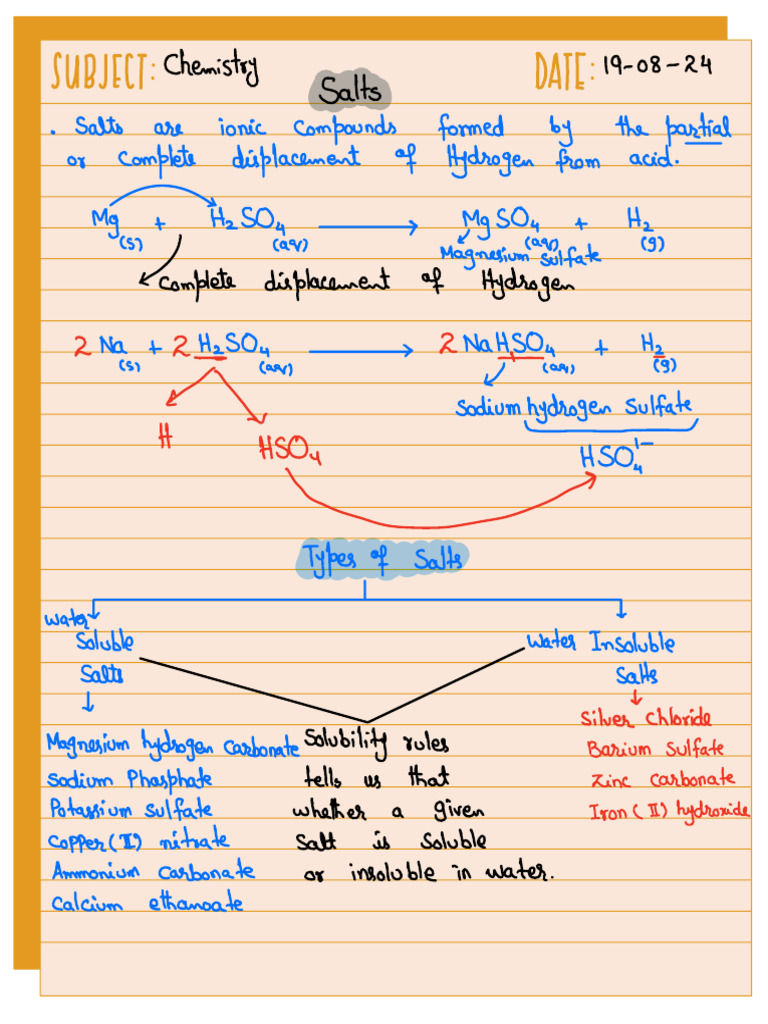 SUBJECT: Chemistry DATE: 19-08-24
Salts
. Salts are ionic compounds formed by the partial
or complete displacement of Hydrogen from acid.
Mg(s) + H₂SO₄(aq) → MgSO₄(aq) + H₂(g)
Magnesium sulfate
Complete displacement of Hydrogen
2 Na(s) + 2 H₂SO₄(aq) → 2 NaHSO₄(aq) + H₂(g)
Sodium hydrogen sulfate
H HSO₄ HSO₄¹⁻
Types of Salts
Water Soluble Salts
Water Insoluble Salts
Magnesium hydrogen carbonate
Sodium Phosphate
Potassium sulfate
Copper (II) nitrate
Ammonium carbonate
Calcium ethanoate
Solubility rules
tells us that
whether a given
Salt is Soluble
or insoluble in water.
Silver Chloride
Barium Sulfate
Zinc carbonate
Iron (II) hydroxide